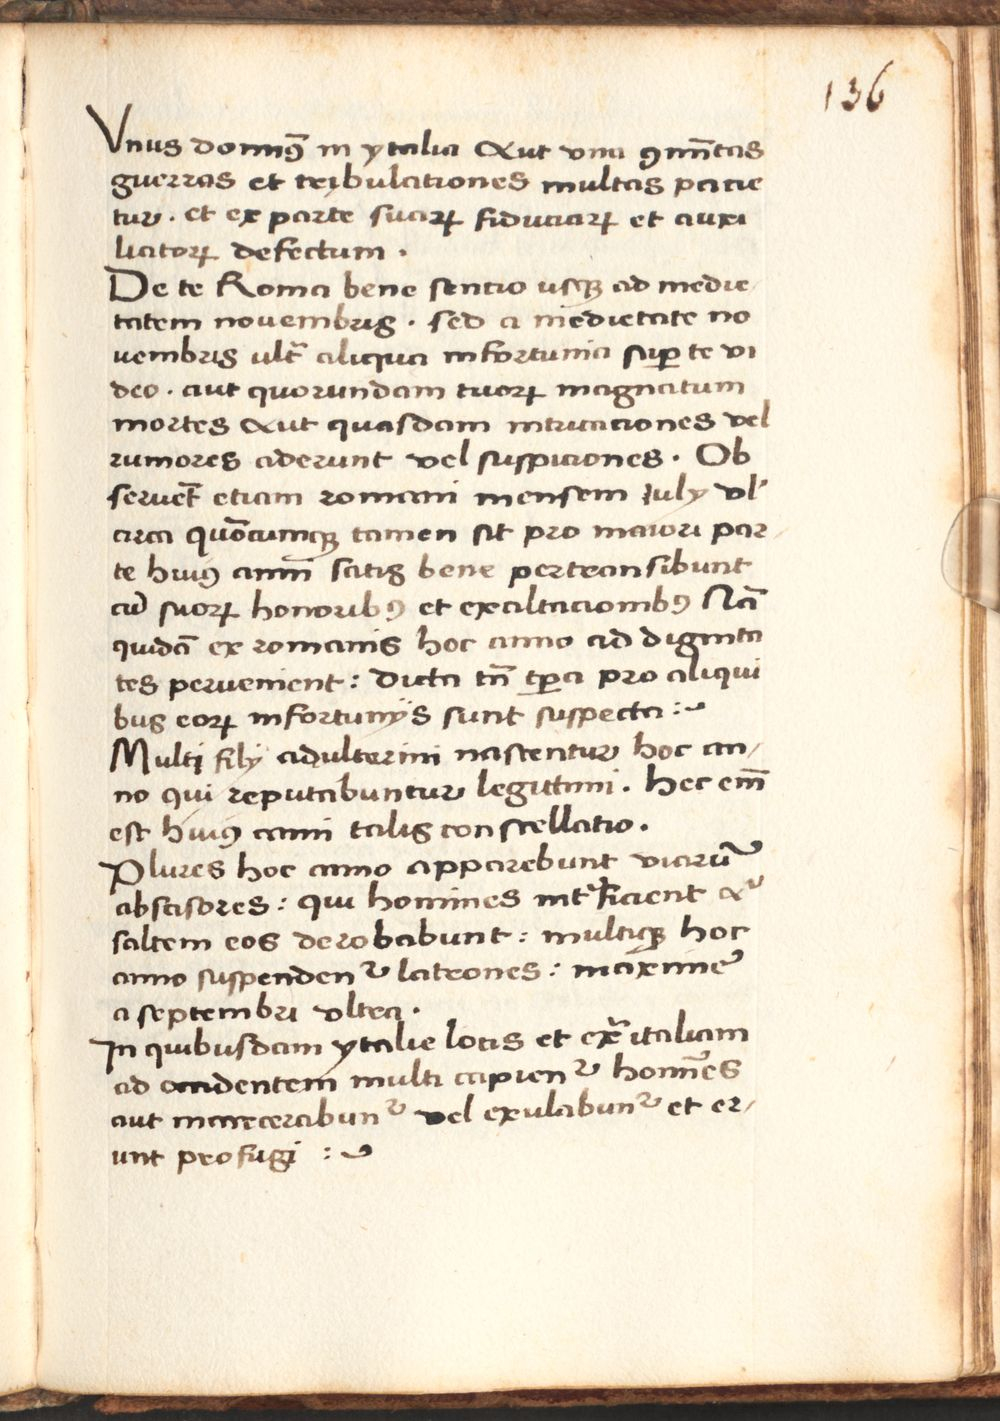 136
Vnus domin⁹ in ytalia Aut vna ꝯmu̅tas
guerras et tribulationes multas pacie
tur . et ex parte suaꝝ fiduciaꝝ et auxi
liatoꝝ defectum .
De te Roma bene sentio usqꝫ ad medie/
tatem novembris . sed a medietate no
uembris ult᷑ aliqua infortunia suꝑ te vi
deo . aut quorundam tuoꝝ magnatum
mortes Aut quasdam intricaciones vel
rumores aderunt vel suspiciones . Ob
serue̅t etiam romani mensem July vl'
circa quo̅cumqꝫ tamen sit pro maiori par/
te hui⁹ anni satis bene pertransibunt
cu̅ suoꝝ honorib⁹ et exaltacionib⁹ Na̅
quida̅ ex romanis hoc anno ad dignita
tes pervenient : Dicta tn̅ tꝑa pro aliqui
bus eoꝝ infortunijs sunt suspecta :~
Multi filij adulterini nascentur hoc an/
no qui reputabuntur legittimi . hec em̅
est hui⁹ anni talis constellatio .
Plures hoc anno apparebunt viaru̅
abscisores : qui homines int᷑ficient A
saltem eos derobabunt : multiqꝫ hoc
anno suspenden᷑ latrones : maxime
a septembri vltra .
In quibusdam ytalie locis et ext᷑ italiam
ad occidentem multi capien᷑ homi̅es
aut incarcerabun᷑ vel exulabun᷑ et er/
unt profugi :~